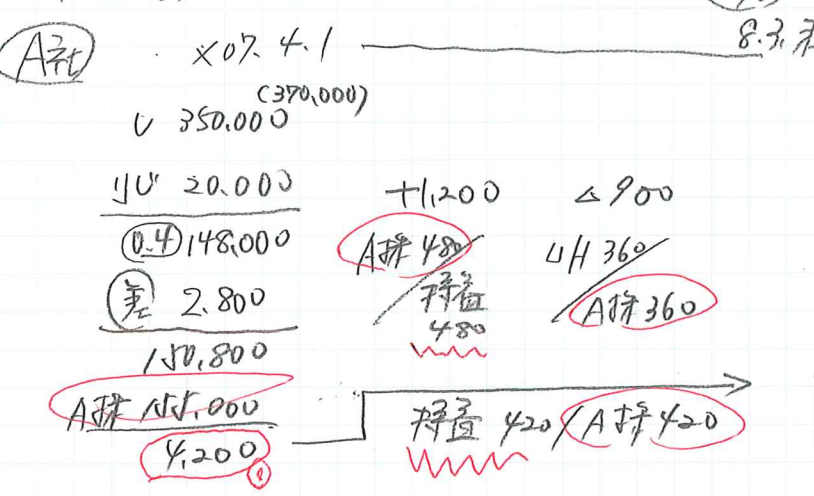 A社 ×07.4.1 8.3.末
(370,000)
U 350.000
リU 20.000 +1,200 △900
0.4 148,000 A株 480/ UH 360/
差 2.800 持益 A株 360
480
150,800
A株 155,000 持益 420/A株 420
4,200
①